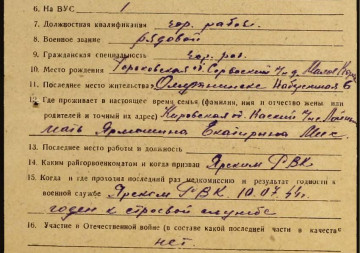 6. На ВУС 1
7. Должностная квалификация чор. рабоч.
8. Военное звание рядовой
9. Гражданская специальность чор. раб.
10. Место рождения Горьковская о. р-н д. Малая
11. Последнее место жительства Набережная 6
12. Где проживает в настоящее время семья (фамилия, имя и отчество жены или
родителей и точный их адрес) Кировская об.
мать Ярмошина Екатирина Мих
13. Последнее место работы и должность
14. Каким райгорвоенкоматом и когда призван Ярским РВК
15. Когда и где проходил последний раз медкомиссию и результат годности к
военной службе Ярском РВК 10.07.44г.
годен к строевой службе
16. Участие в Отечественной войне (в составе какой последней части в качестве
нет.